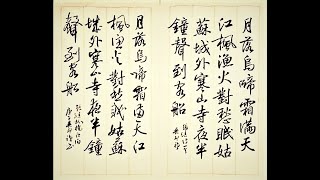 月落烏啼霜滿天
江楓漁火對愁眠姑
蘇城外寒山寺夜半
鐘聲到客船
月落烏啼霜滿天江
楓漁火對愁眠姑蘇
城外寒山寺夜半鐘
聲到客船